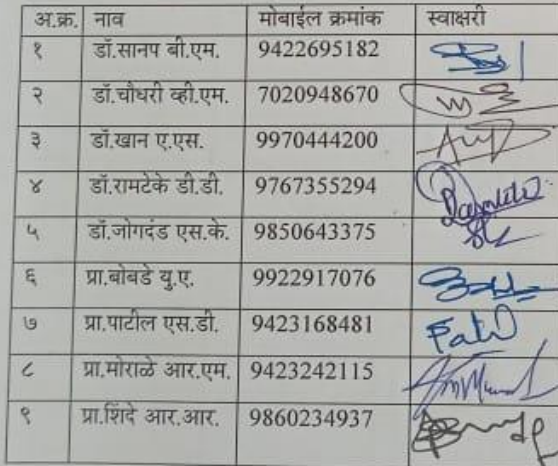 अ.क्र. नाव मोबाईल क्रमांक स्वाक्षरी
१ डॉ.सानप बी.एम. 9422695182
२ डॉ.चौधरी व्ही.एम. 7020948670
३ डॉ.खान ए.एस. 9970444200
४ डॉ.रामटेके डी.डी. 9767355294
५ डॉ.जोगदंड एस.के. 9850643375
६ प्रा.बोबडे यु.ए. 9922917076
७ प्रा.पाटील एस.डी. 9423168481
८ प्रा.मोराळे आर.एम. 9423242115
९ प्रा.शिंदे आर.आर. 9860234937